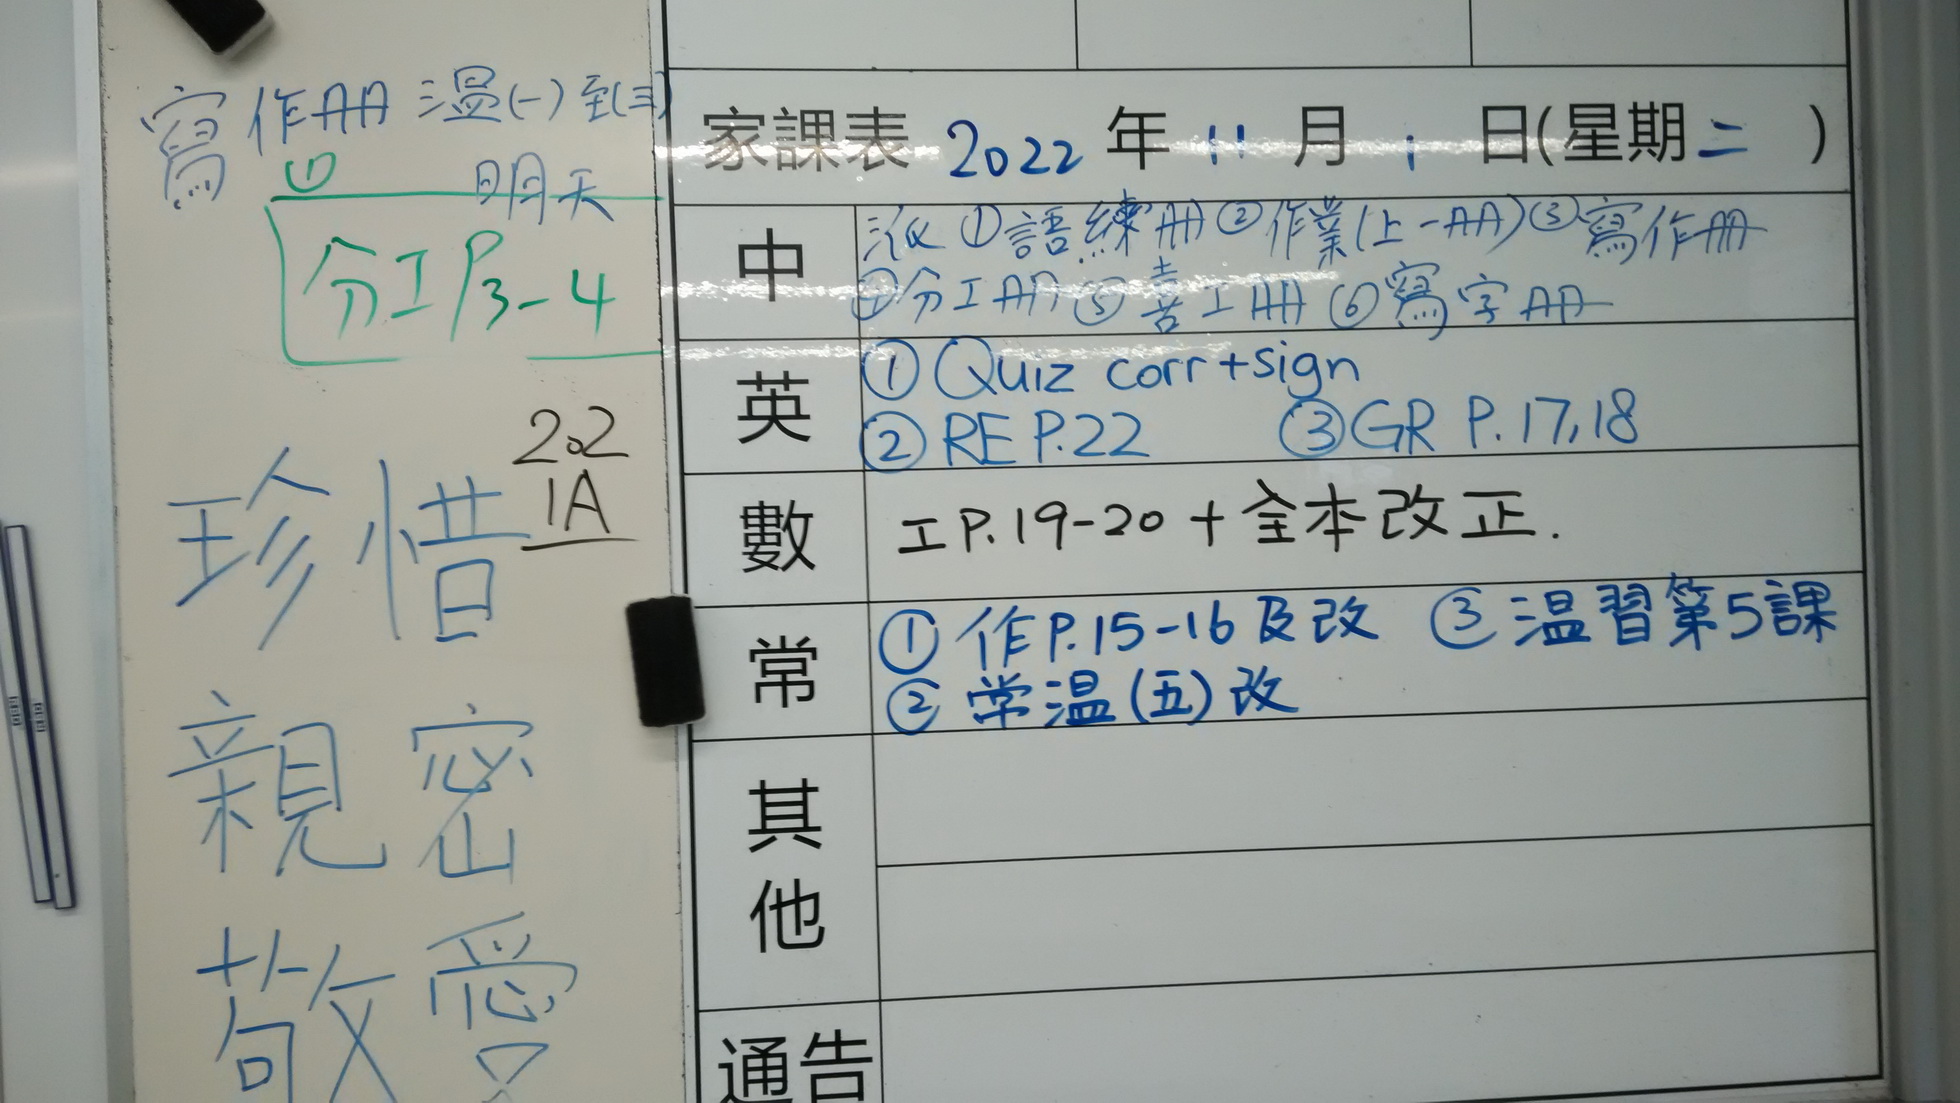 寫作冊 温(一)至(三)
① 明天
分工P3-4
202
1A
珍惜
親密
敬愛
家課表 2022 年 11 月 1 日(星期二 )
中 派 ①語練冊 ②作業(上一冊) ③寫作冊
④分工冊 ⑤書工冊 ⑥寫字冊
英 ① Quiz corr+sign
② RE P.22 ③ GR P.17,18
數 工P.19-20 + 全本改正.
常 ① 作P.15-16及改 ③ 温習第5課
② 常温(五)改
其他
通告